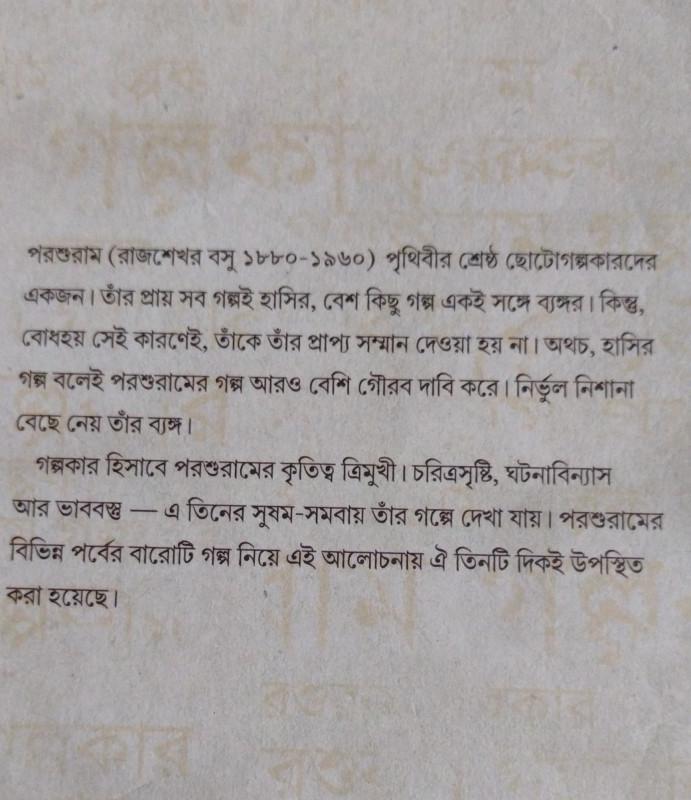 পরশুরাম (রাজশেখর বসু ১৮৮০-১৯৬০) পৃথিবীর শ্রেষ্ঠ ছোটোগল্পকারদের
একজন। তাঁর প্রায় সব গল্পই হাসির, বেশ কিছু গল্প একই সঙ্গে ব্যঙ্গর। কিন্তু,
বোধহয় সেই কারণেই, তাঁকে তাঁর প্রাপ্য সম্মান দেওয়া হয় না। অথচ, হাসির
গল্প বলেই পরশুরামের গল্প আরও বেশি গৌরব দাবি করে। নির্ভুল নিশানা
বেছে নেয় তাঁর ব্যঙ্গ।
গল্পকার হিসাবে পরশুরামের কৃতিত্ব ত্রিমুখী। চরিত্রসৃষ্টি, ঘটনাবিন্যাস
আর ভাববস্তু — এ তিনের সুষম-সমবায় তাঁর গল্পে দেখা যায়। পরশুরামের
বিভিন্ন পর্বের বারোটি গল্প নিয়ে এই আলোচনায় ঐ তিনটি দিকই উপস্থিত
করা হয়েছে।